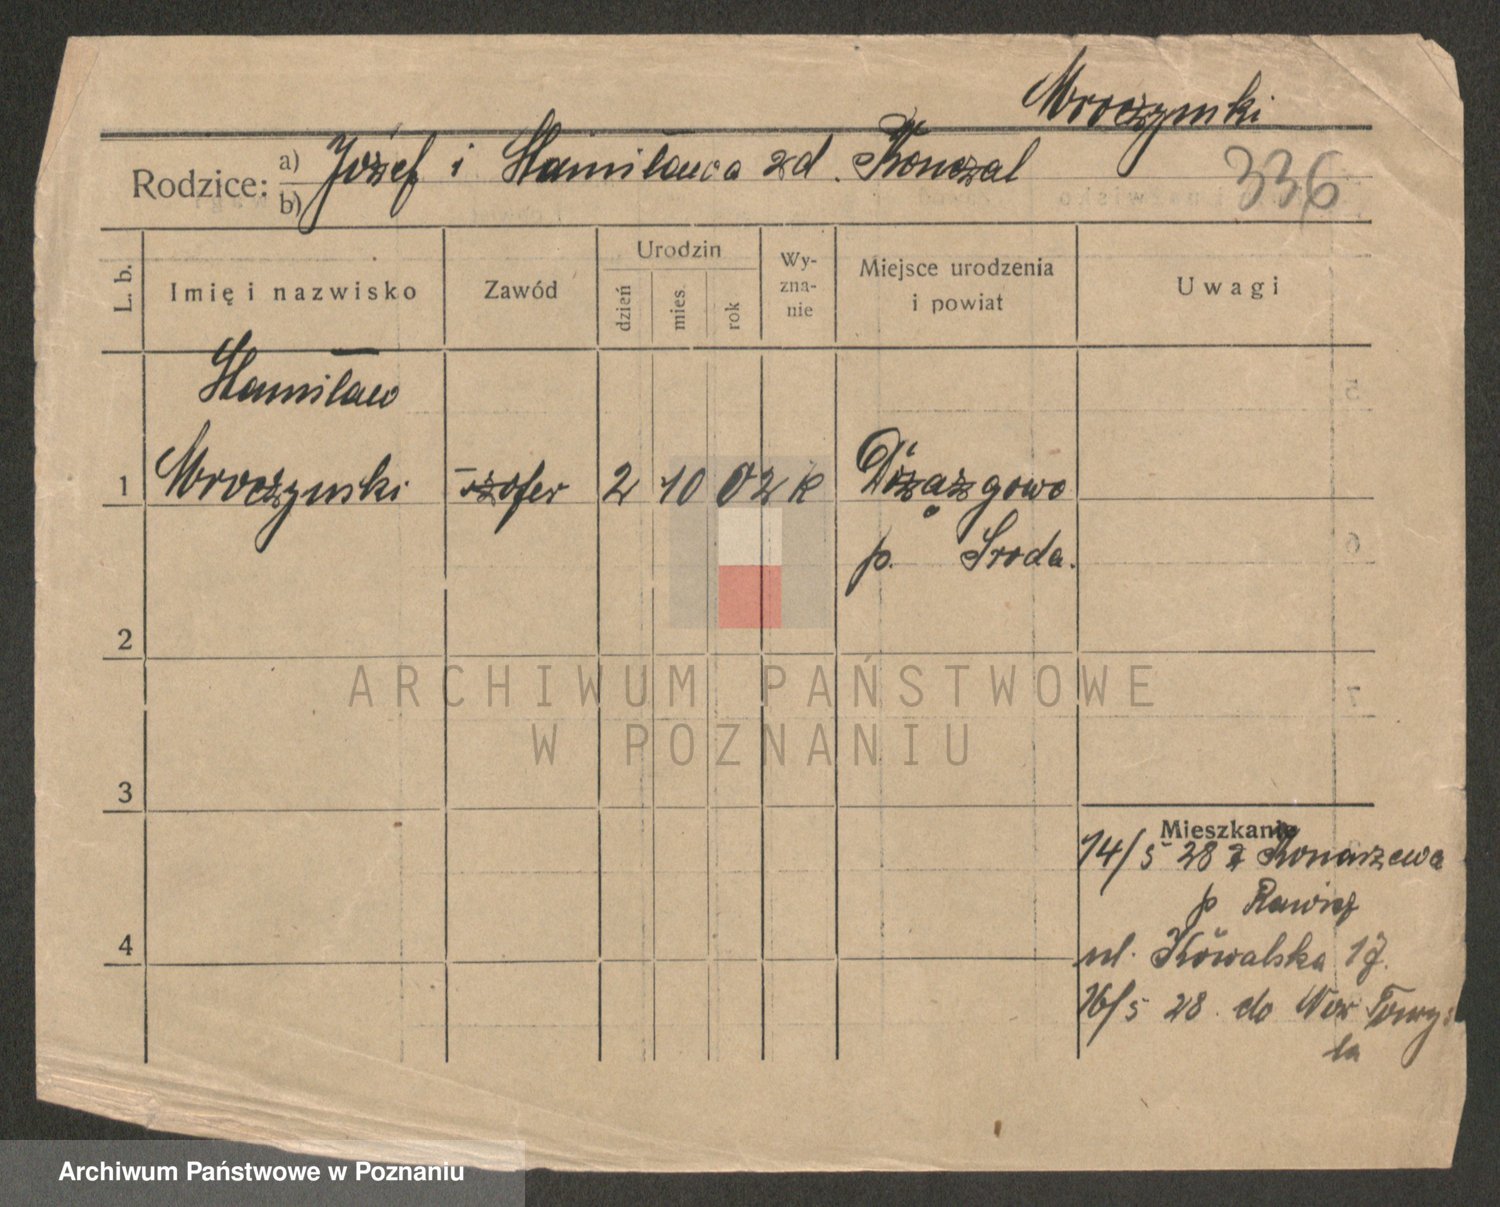 Mroczynski
Rodzice: a) Józef i Stanisława zd. Konczal
b)
336
L. b.
Imię i nazwisko
Zawód
Urodzin
dzień
mies.
rok
Wy-
zna-
nie
Miejsce urodzenia
i powiat
Uwagi
Stanisław
1 Mroczynski szofer 2 10 02 k
p. Środa.
2
3
4
Mieszkanie
14/5 28 z Konarzewa
p Rawicz
ul. Kowalska 17.
16/5 28. do
ARCHIWUM PAŃSTWOWE
W POZNANIU
Archiwum Państwowe w Poznaniu